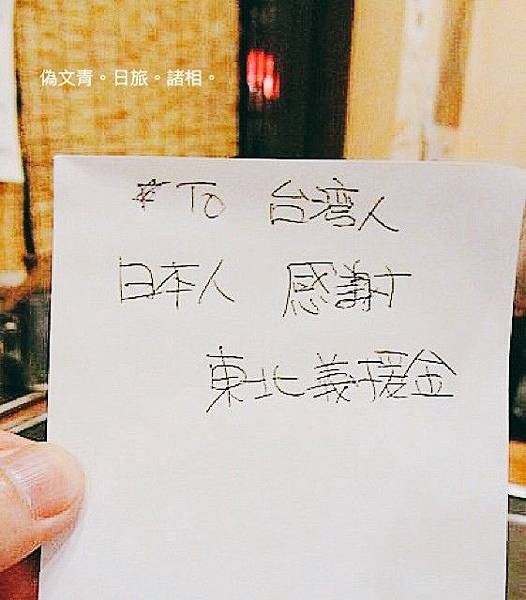 偽文青。日旅。諸相。
To 台湾人
日本人 感謝
東北義援金